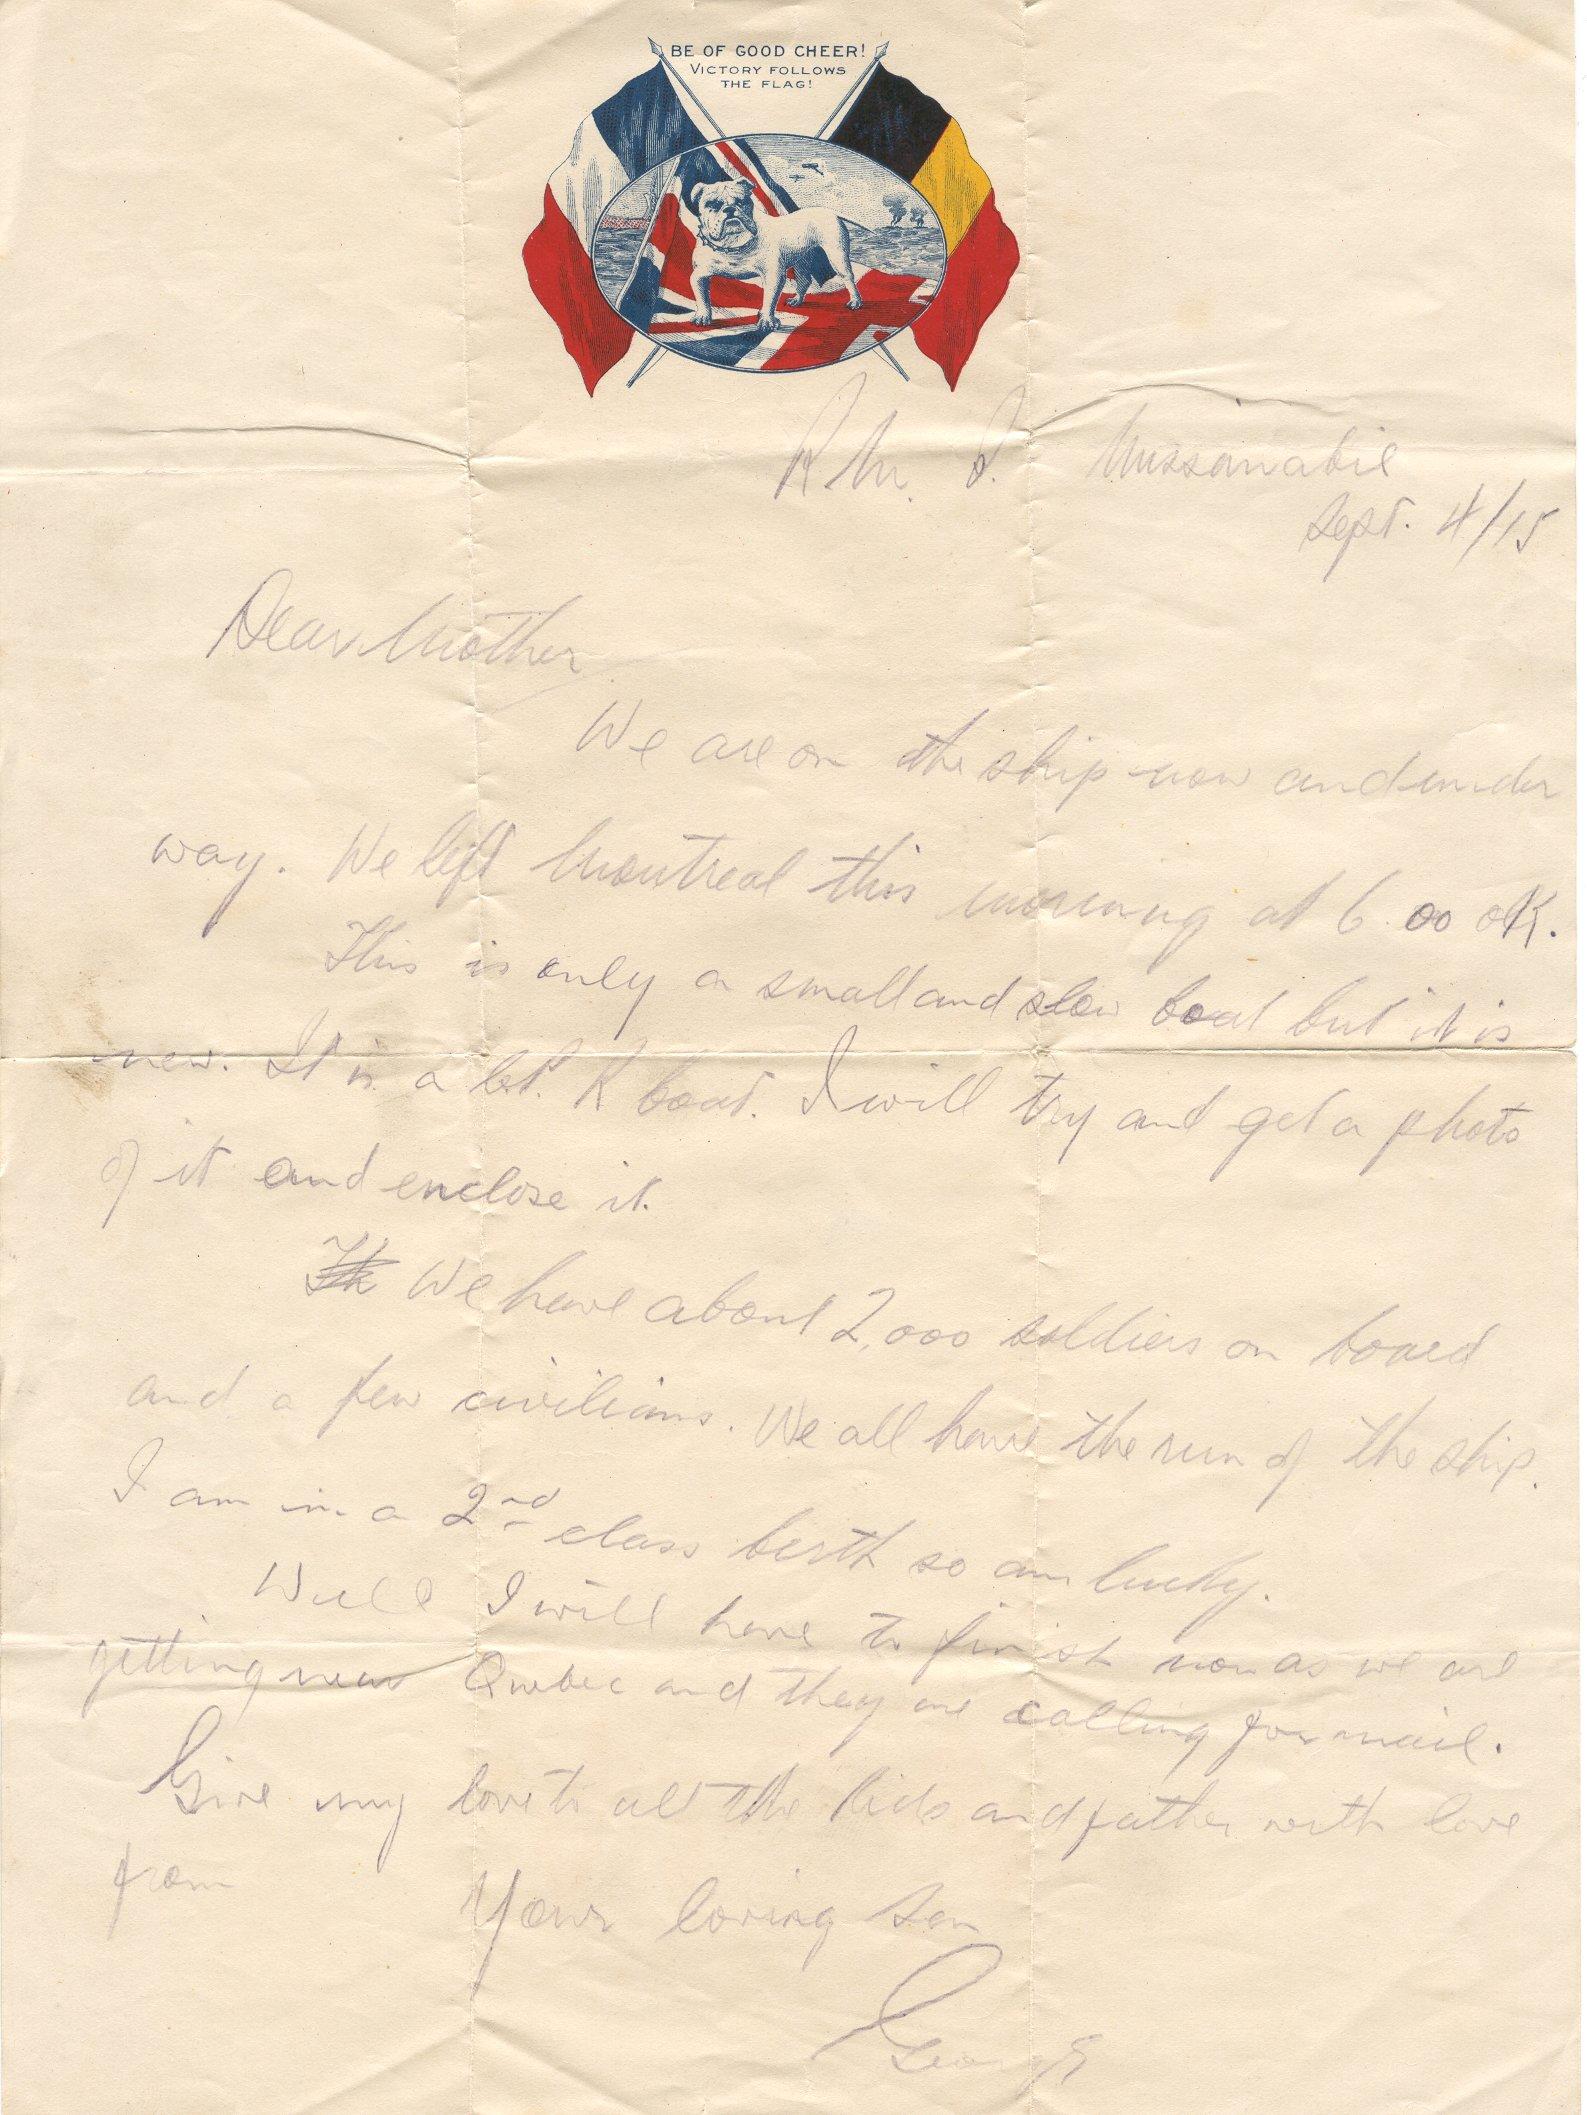 BE OF GOOD CHEER!
VICTORY FOLLOWS
THE FLAG!
R.M.S. Missanabie
Sept. 4/15
Dear Mother
We are on the ship now and under
way. We left Montreal this morning at 6 00 oK.
This is only a small and slow boat but it is
new. It is a boat. I will try and get a photo
of it and enclose it.
Th We have about 2,000 soldiers on board
and a few civilians. We all have the run of the ship.
I am in a 2nd class birth so am lucky.
Well I will have to finish now as we are
getting near Quebec and they are calling for mail.
Give my love to all the kids and father with love
from
Your loving son
George